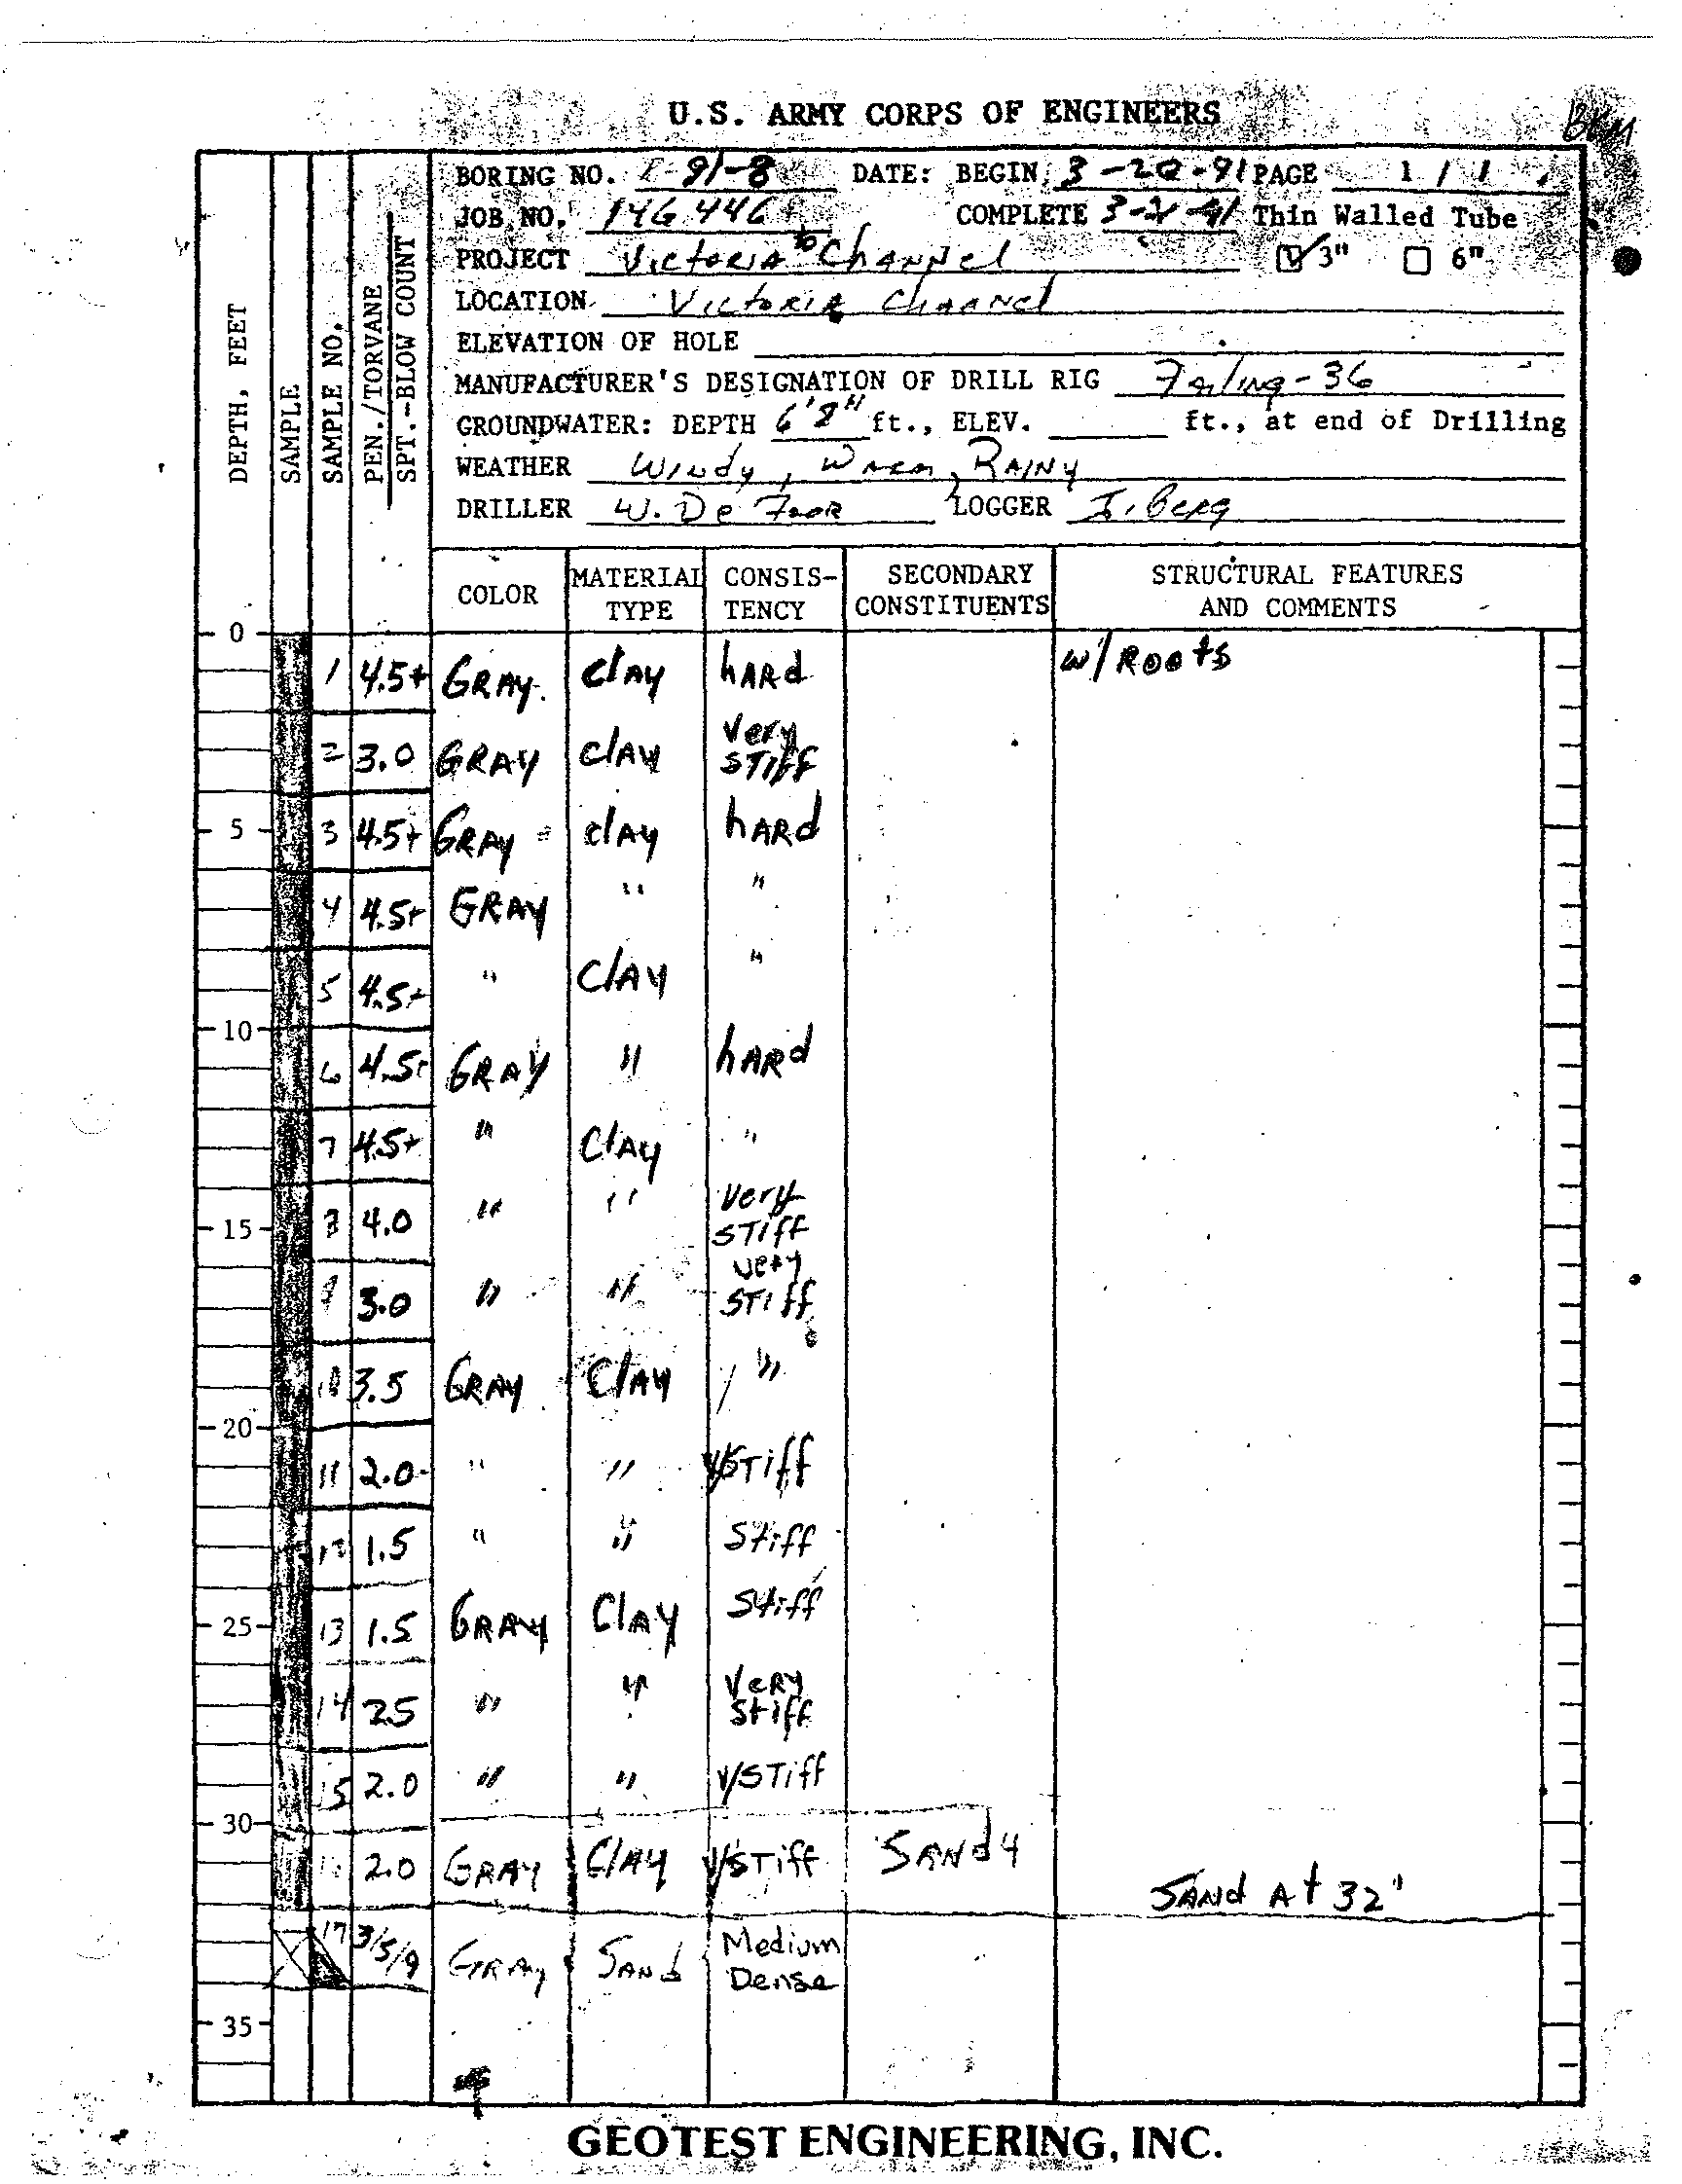 U.S. ARMY CORPS OF ENGINEERS
BKM
BORING NO. 91-8 DATE: BEGIN 3-20-91 PAGE 1 / 1
JOB NO. 14G446 COMPLETE Thin Walled Tube
PROJECT Victoria Channel 3" 6"
LOCATION Victoria Channel
ELEVATION OF HOLE
MANUFACTURER'S DESIGNATION OF DRILL RIG Failing-36
GROUNDWATER: DEPTH 6'8" ft., ELEV. ft., at end of Drilling
WEATHER Windy, Warm, Rainy
DRILLER W. De Foor LOGGER I. Berg
DEPTH, FEET
SAMPLE
SAMPLE NO.
PEN./TORVANE
SPT.-BLOW COUNT
COLOR MATERIAL TYPE CONSIS-TENCY SECONDARY CONSTITUENTS STRUCTURAL FEATURES AND COMMENTS
0
1 4.5+ GRAY clay hard w/ Roots
2 3.0 GRAY clay very stiff
5 3 4.5+ GRAY clay hard
4 4.5+ GRAY " "
5 4.5+ " clay "
10
6 4.5+ GRAY " hard
7 4.5+ " clay "
15 8 4.0 " " very stiff
9 3.0 " " very stiff
10 3.5 GRAY clay "
20
11 2.0 " " v/stiff
12 1.5 " " stiff
25 13 1.5 GRAY clay stiff
14 2.5 " " very stiff
15 2.0 " " v/stiff
30
2.0 GRAY clay v/stiff sandy
Sand At 32'
17 3/5/9 Gray Sand Medium Dense
35
GEOTEST ENGINEERING, INC.